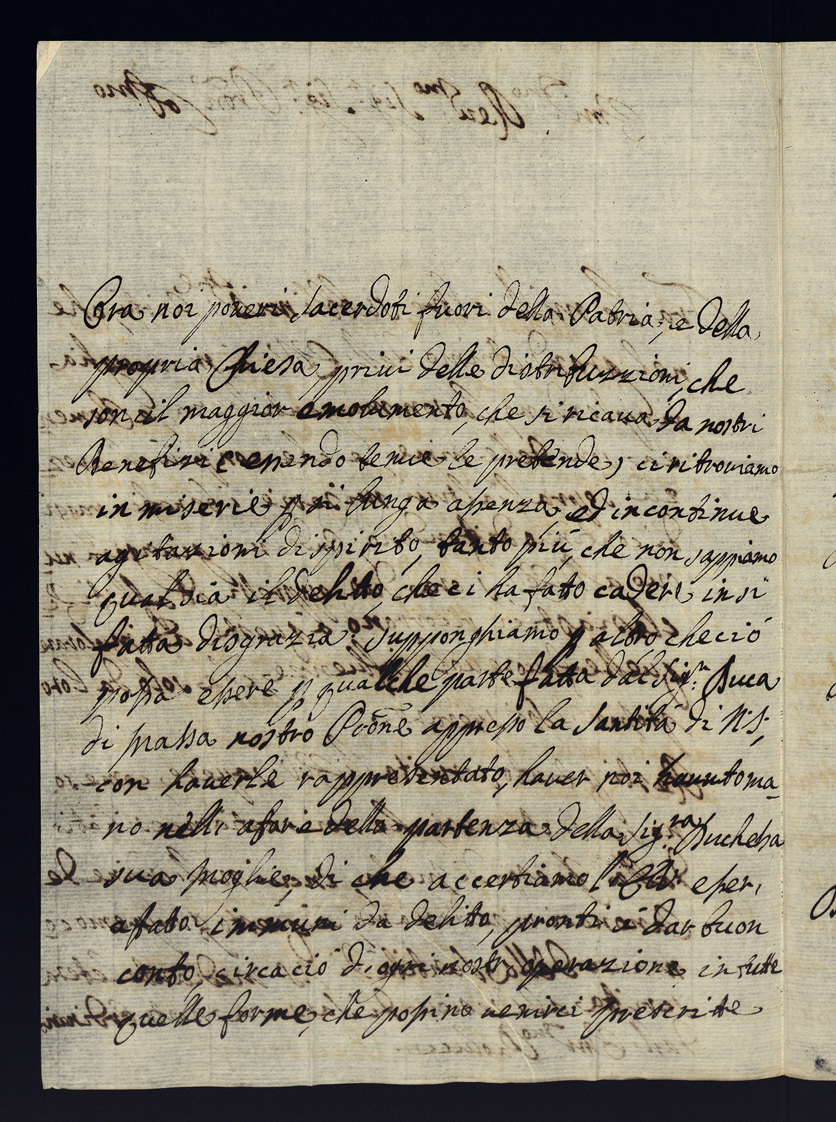 Ora noi poveri sacerdoti fuori della Patria, e della
propria Chiesa, privi delle distribuzzioni, che
son il maggior emolumento, che si ricava da nostri
Benefizi (essendo tenue le prebende) ci ritroviamo
in miserie p sì lunga assenza, ed in continue
agitazioni di spirito, tanto più, che non sappiamo
qual sia il delito, che ci ha fatto cadere in sì
fatta disgrazia. Supponghiamo p altro che ciò
possa essere p qualche parte fatta dal Sig.r Duca
di Massa nostro Prone appresso la Santità di N.S.,
con haverle rappresentato, haver noi hauuto ma-
no nell' afare della partenza della Sig.ra Duchessa
sua moglie, di che accertiamo l' esser,
afatto immuni da delito, pronti à dar buon
conto, circa ciò d'ogni nostr operazione in tutte
quelle forme, che possino venirci prescritte